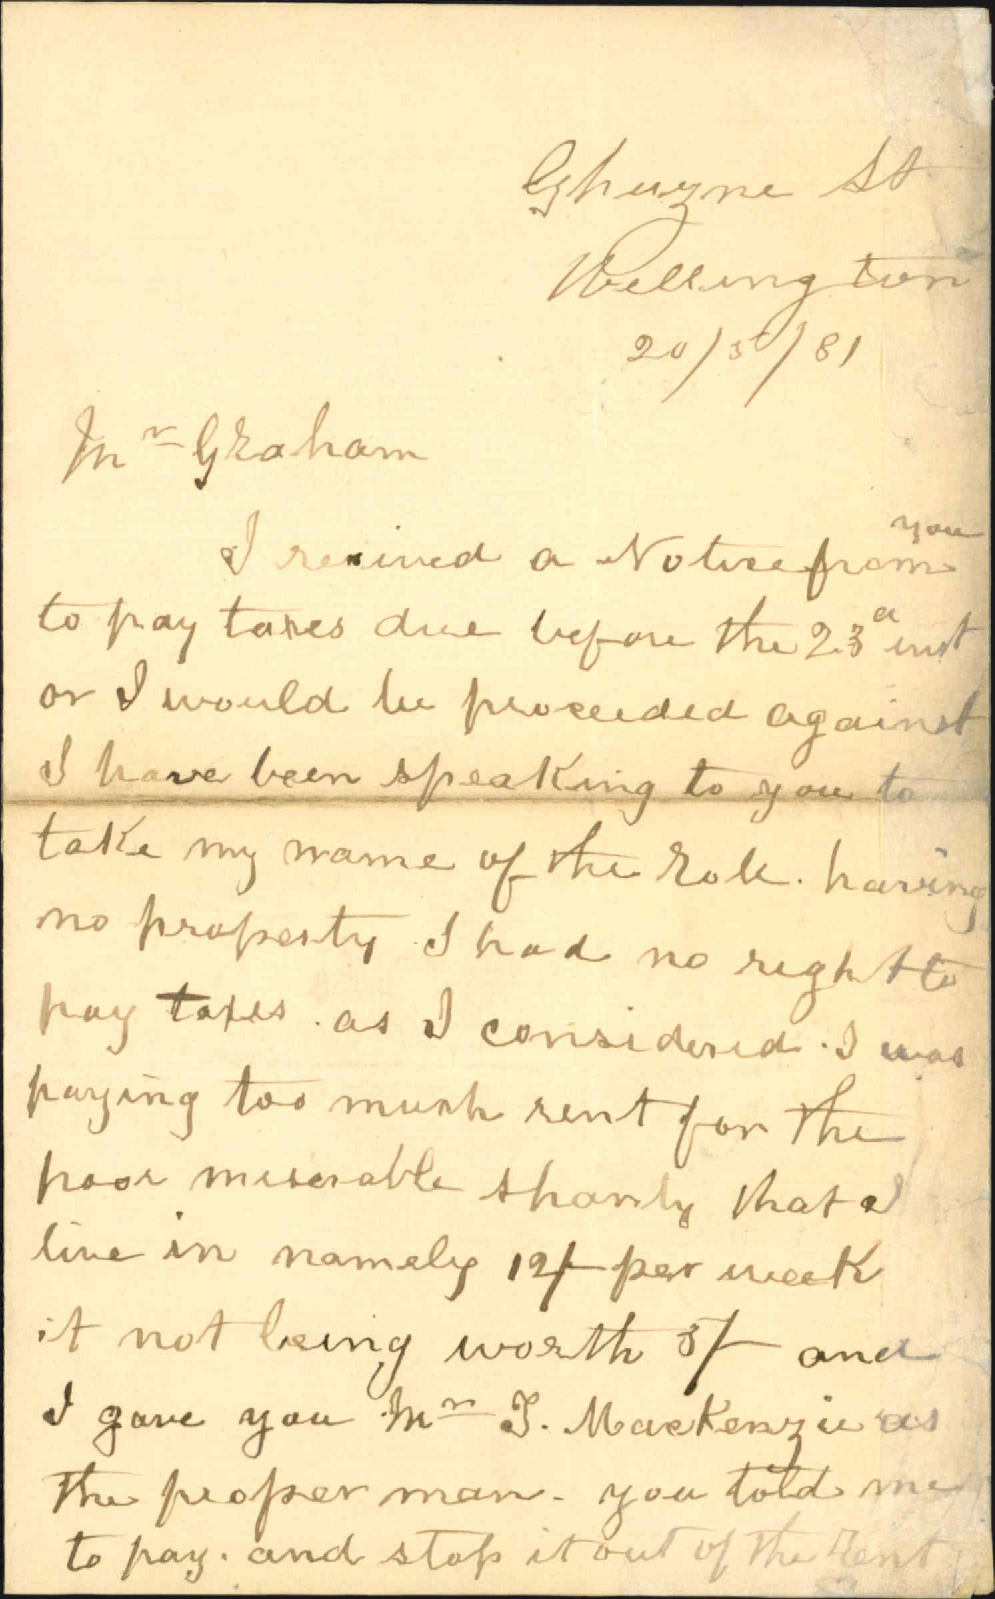 Ghuzne St
Wellington
20/5/81
Mr Graham
I recived a Notice from you
to pay taxes due before the 23d inst
or I would be proceeded against
I have been speaking to you to
take my name of the Role. having
no property I had no right to
pay taxes. as I considered. I was
paying too much rent for the
poor miserable shanty that I
live in namely 12/- per week
it not being worth 5/- and
I gave you Mr T. MacKenzie as
the proper man. you told me
to pay. and stop it out of the Rent